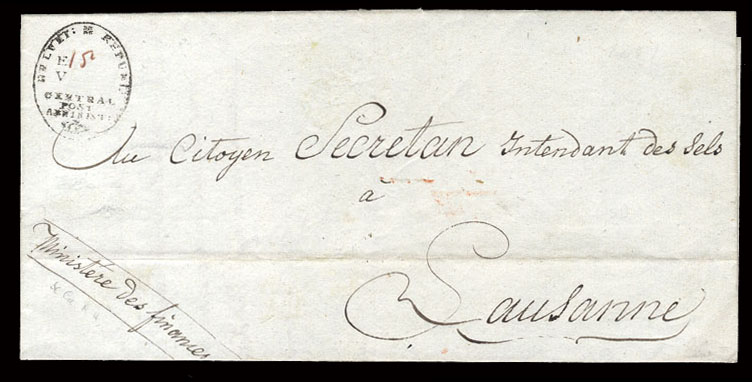 HELVET: REPUBL
E 15
V
CENTRAL
POST
ADMINIST:
Au Citoyen Secretan Intendant des Sels
a
Lausanne
Ministere des finances